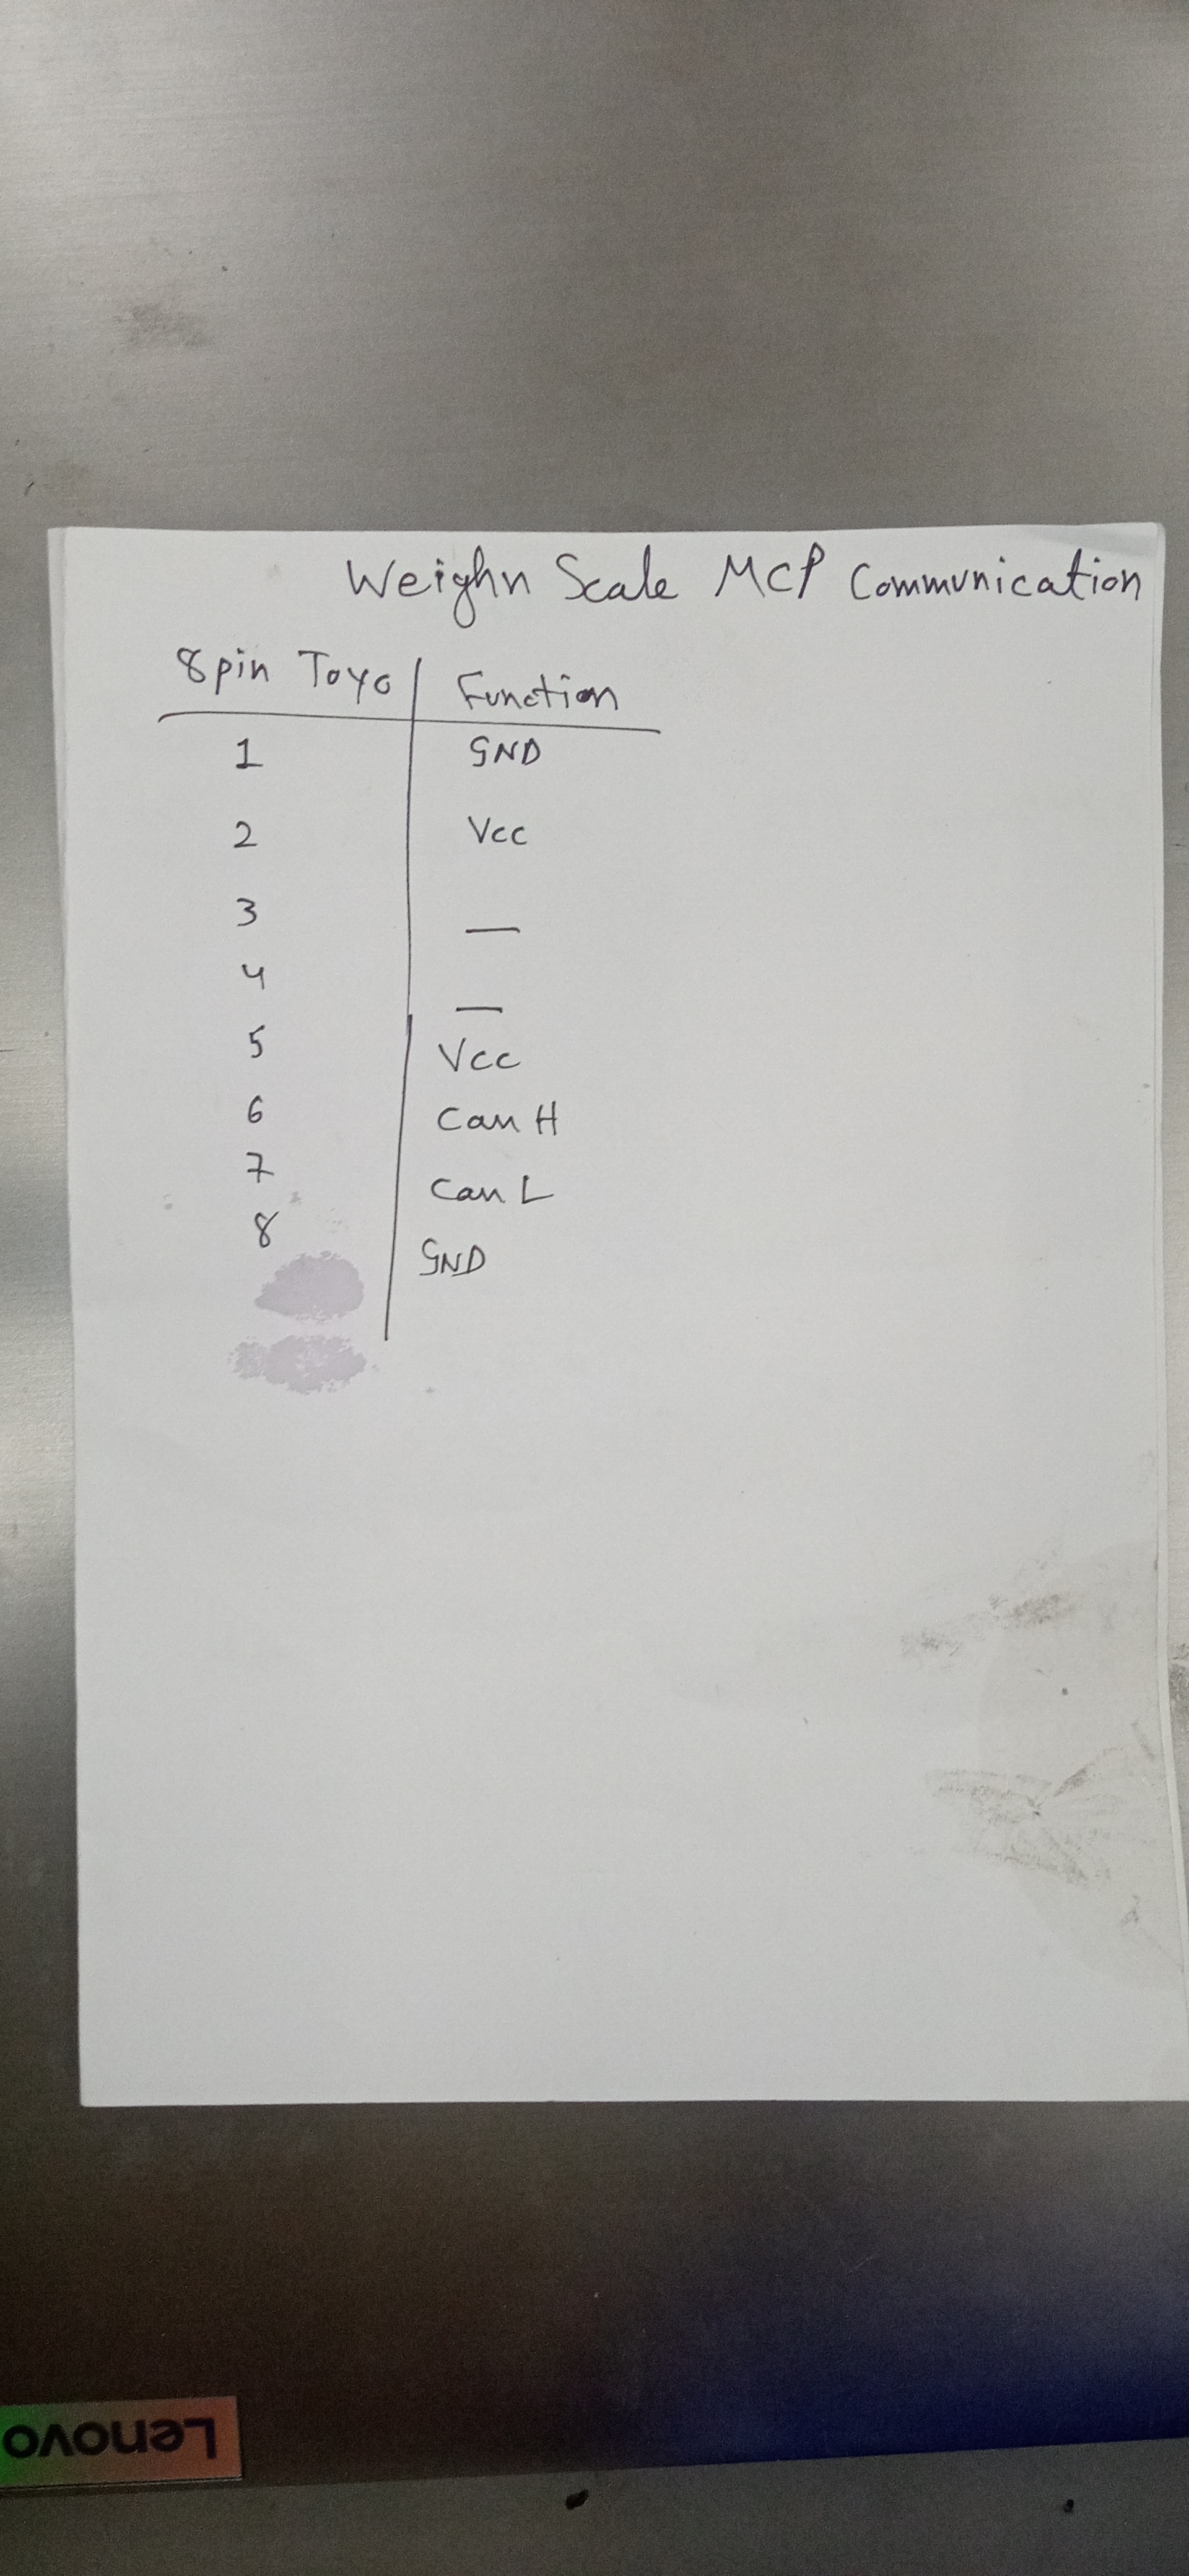 Weighn Scale MCP Communication
8pin Toyo Function
1 GND
2 Vcc
3 —
4 —
5 Vcc
6 Can H
7 Can L
8 GND
Lenovo